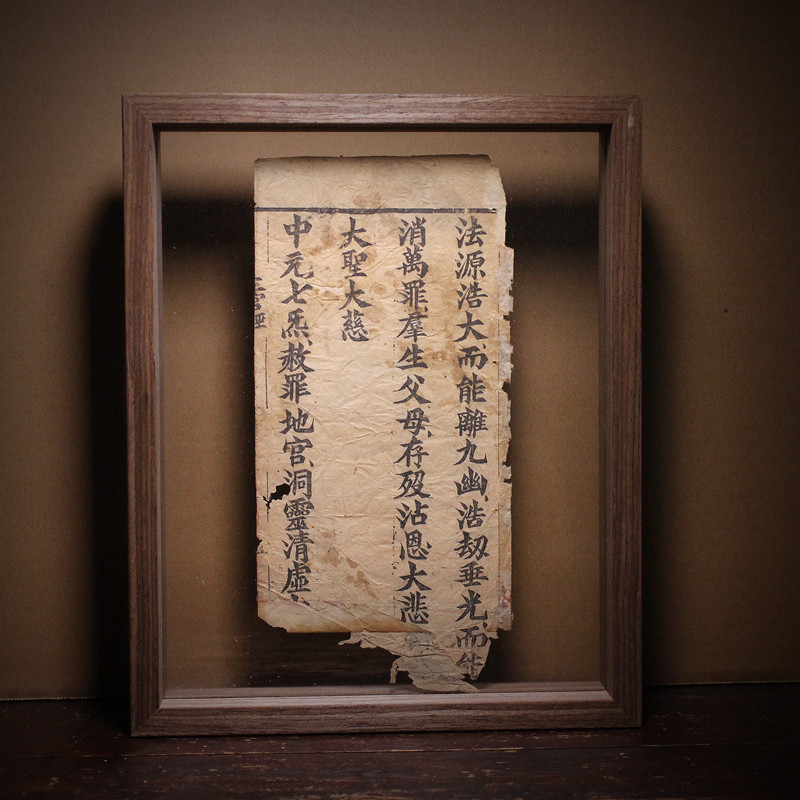 法源浩大而能離九幽浩劫垂光而能
消萬罪羣生父母存歿沾恩大悲
大聖大慈
中元七炁赦罪地官洞靈清虛